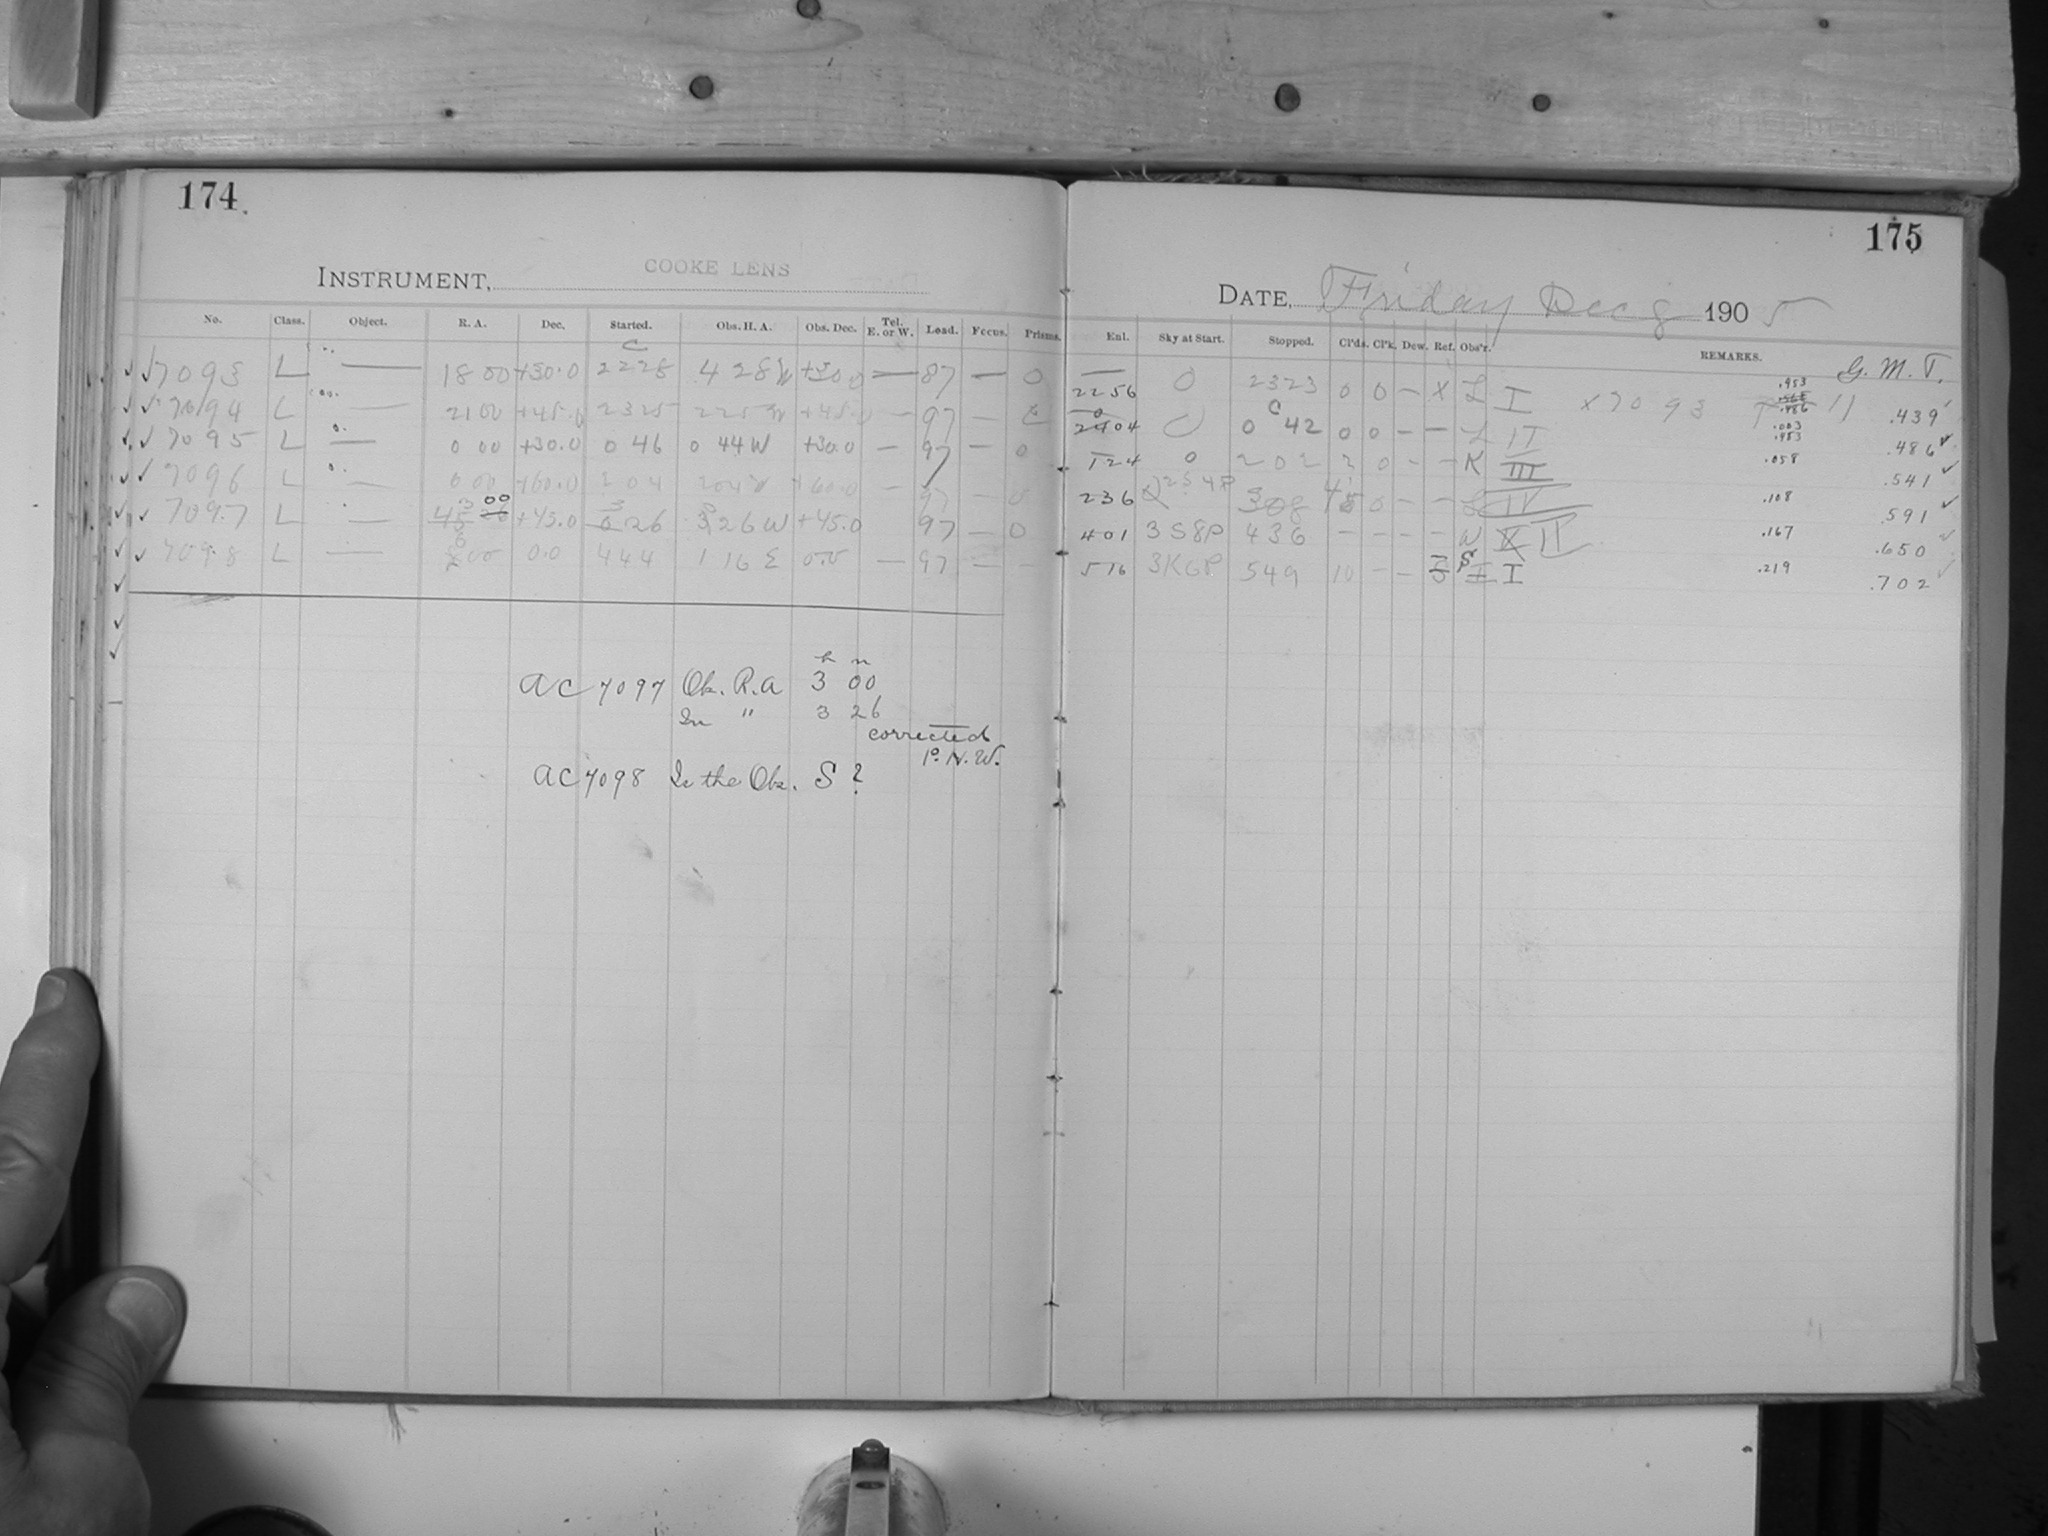 174
175
COOKE LENS
INSTRUMENT,
DATE, Friday Dec 8 1905
No. Class. Object. R. A. Dec. Started. Obs. H. A. Obs. Dec. Tel. E. or W. Load. Focus. Prisms. Enl. Sky at Start. Stopped. Cl'ds. Cl'k. Dew. Ref. Obs'r. REMARKS. G. M. T.
7093 L — 18 00 +30.0 22 28 4 28 W +30.0 — 87 — 0 2256 0 2323 0 0 — X L I X 7093 .953 .439
7094 L — 21 00 +45.0 23 25 2 25 W +45.0 — 97 — 0 04 0 0 42 0 0 — — L II .003 .486
7095 L — 0 00 +30.0 0 46 0 44 W +30.0 — 97 — 0 124 0 202 2 0 — — K III .058 .541
7096 L — 0 00 +60.0 2 04 2 04 W +60.0 — 97 — 0 236 2S4P 308 0 — — L IV .108 .591
7097 L — 3 00 +45.0 3 26 26 W +45.0 97 — 0 401 3S8P 436 — — — — W II .167 .650
7098 L — 6 00 0.0 444 1 16 E 0.0 — 97 — — 516 3K6P 549 10 — — S I .219 .702
h m
AC 7097 Ob. R.A 3 00
In " 3 26
corrected
1° N.W.
AC 7098 Is the Obs. S?